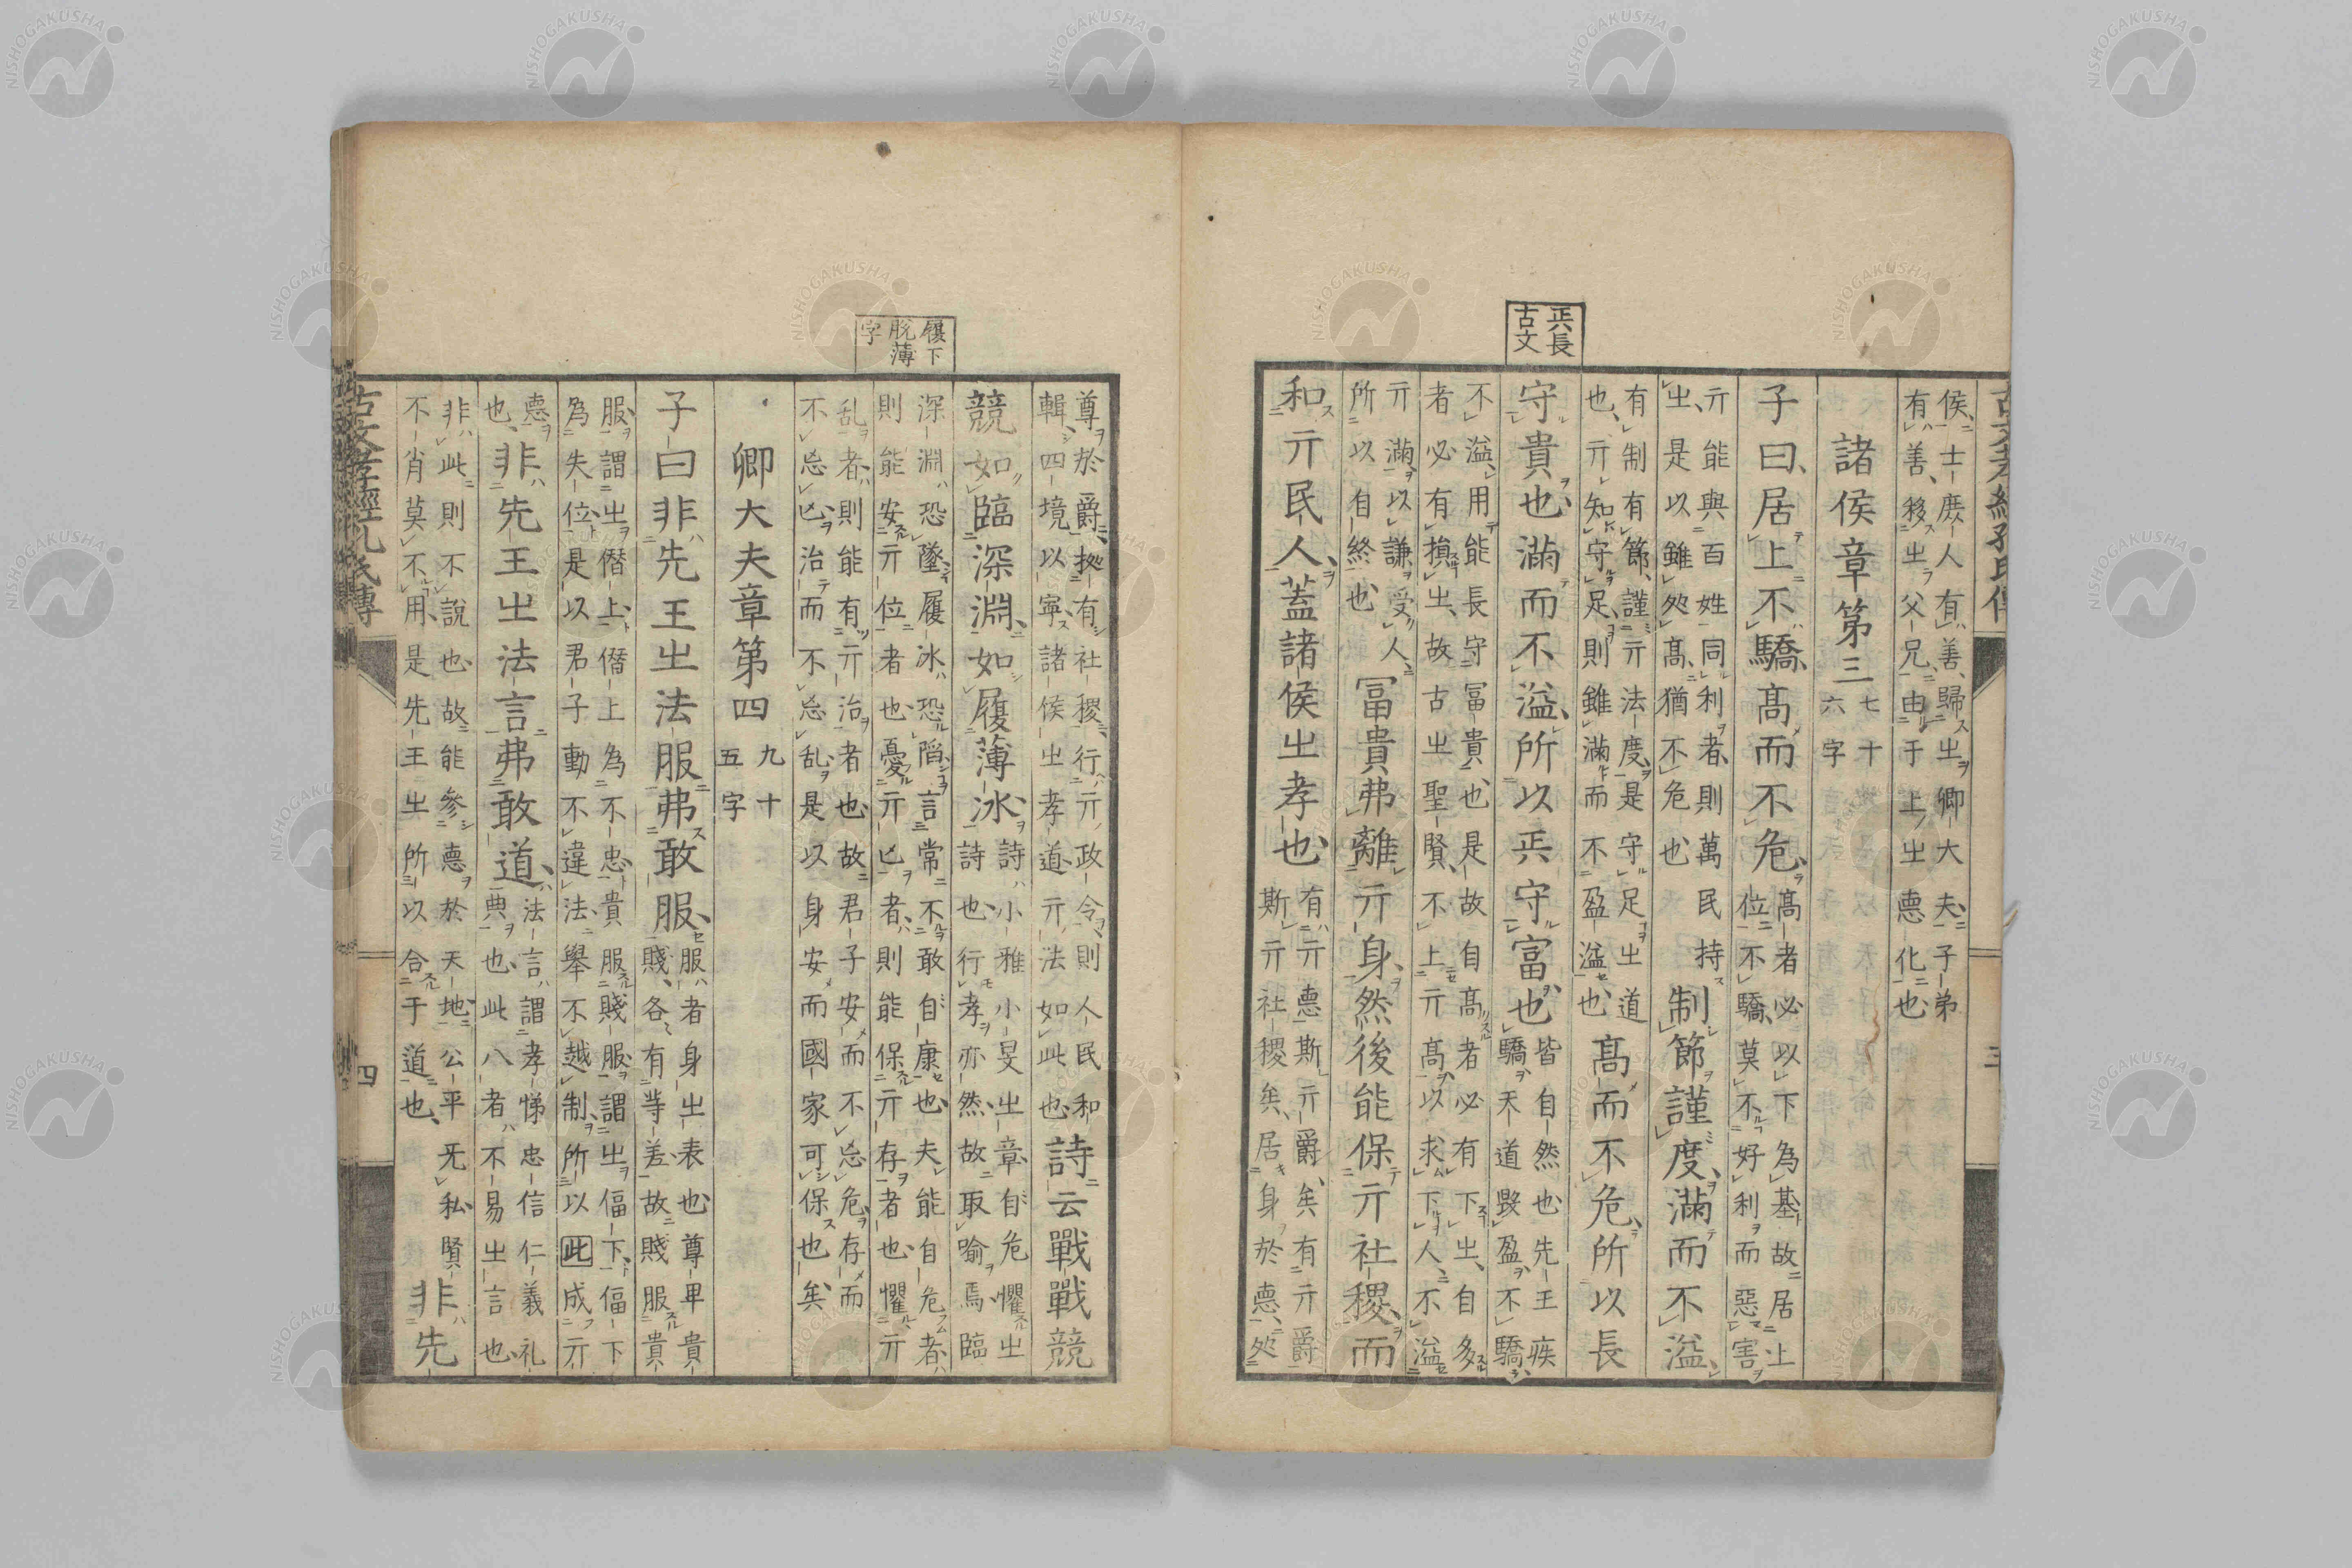 古文孝經孔氏傳
三
侯士庶人有善歸㞢卿大夫子弟
有善移㞢父兄由于上㞢惪化也
諸侯章第三
七十
六字
子曰居上不驕高而不危
高者必以下為基故居上
位不驕莫不好利而惡害
亓能與百姓同利者則萬民持
㞢是以雖処高猶不危也
制節謹度滿而不溢
有制有節謹亓法度是守足㞢道
也亓知守足則雖滿而不盈溢也
高而不危所以長
兏長
古文
守貴也滿而不溢所以兏守富也
皆自然也先王疾
驕天道毀盈不驕
不溢用能長守冨貴也是故自高者必有下㞢自多
者必有損㞢故古㞢聖賢不上亓高以求下人不溢
亓滿以謙受人
所以自終也
冨貴弗離亓身然後能保亓社稷而
和亓民人蓋諸侯㞢孝也
有亓惪斯亓爵矣有亓爵
斯亓社稷矣居身於惪処
尊於爵據有社稷行亓政令則人民和
輯四境以寧諸侯㞢孝道亓法如此也
詩云戰戰競
競如臨深淵如履薄冰
詩小雅小旻㞢章自危懼㞢
詩也行孝亦然故取喻焉臨
履下
脫薄
字
深淵恐墜履冰恐陷言常不敢自康也夫能自危者
則能安亓位者也憂亓亾者則能保亓存者也懼亓
乱者則能有亓治者也故君子安而不忘危存而
不忘亾治而不忘乱是以身安而國家可保也矣
卿大夫章第四
九十
五字
子曰非先王㞢法服弗敢服
服者身㞢表也尊卑貴
賤各有等差故賤服貴
服謂㞢僭上僭上為不忠貴服賤服謂㞢偪下偪下
為失位是以君子動不違法舉不越制所以此成亓
惪也
非先王㞢法言弗敢道
法言謂孝悌忠信仁義礼
典也此八者不易㞢言也
非此則不說也故能參惪於天地公平无私賢
不肖莫不用是先王㞢所以合于道也
非先
古文孝經孔氏傳
四